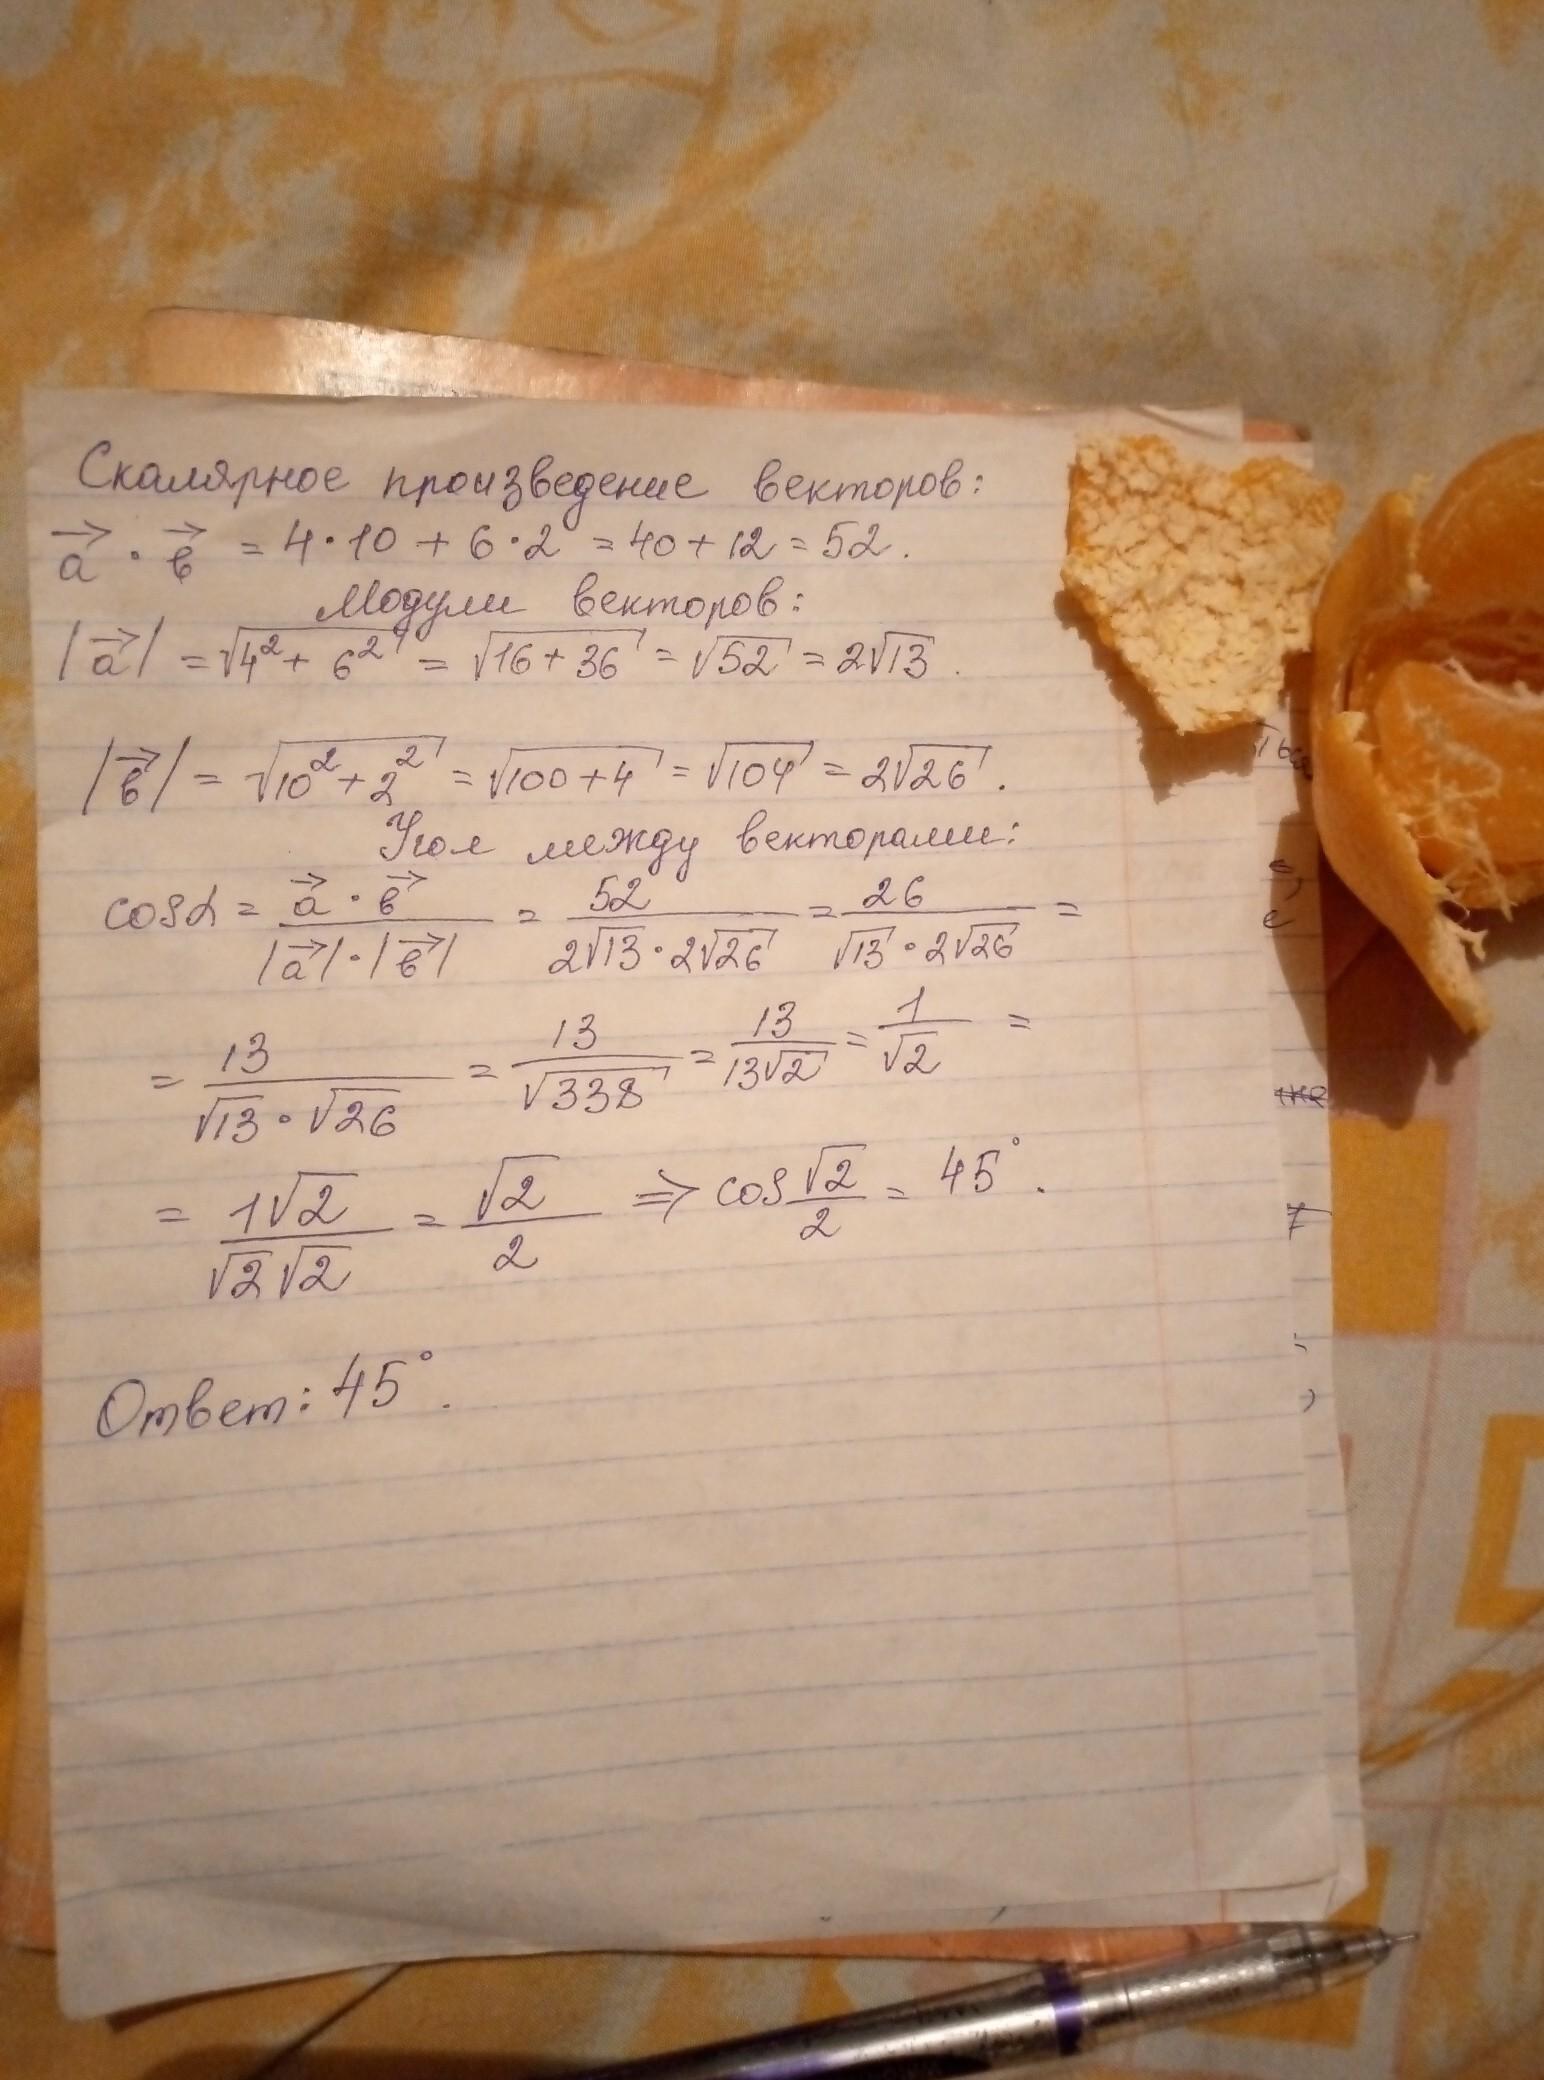 Скалярное произведение векторов:
a⃗ · b⃗ = 4·10 + 6·2 = 40 + 12 = 52.
Модули векторов:
|a⃗| = √(4² + 6²) = √(16 + 36) = √52 = 2√13.
|b⃗| = √(10² + 2²) = √(100 + 4) = √104 = 2√26.
Угол между векторами:
cos α = (a⃗ · b⃗)/(|a⃗| · |b⃗|) = 52/(2√13 · 2√26) = 26/(√13 · 2√26) =
= 13/(√13 · √26) = 13/√338 = 13/(13√2) = 1/√2 =
= 1√2/(√2√2) = √2/2 ⇒ cos √2/2 = 45°.
Ответ: 45°.